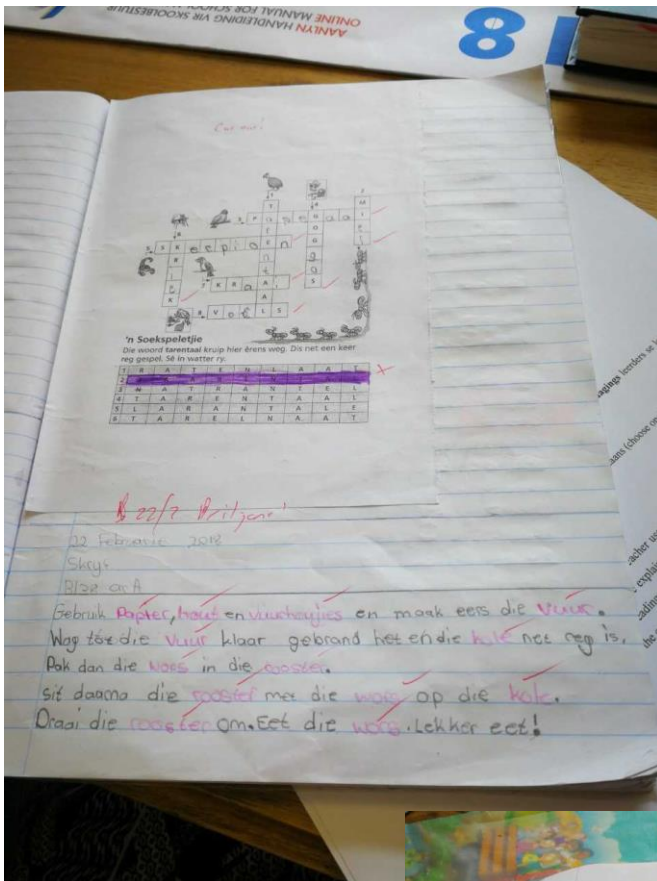 AANLYN HANDLEIDING VIR SKOOLBESTUUR
ONLINE MANUAL FOR SCHOOL
8
'n Soekspeletjie
Die woord tarentaal kruip hier êrens weg. Dis net een keer
reg gespel. Sê in watter ry.
1 R A T E N L A A T
2
3 N A T R A N T E L
4 T A R E N T A A L
5 L A R A N T A L E
6 T A R E L N A A T
22/2 Briljant!
22 Februarie 2018
Skryf
Blsz 92 A
Gebruik Papier, hout en vuurhoutjies en maak eers die vuur.
Wag tot die vuur klaar gebrand het en die kole net reg is.
Pak dan die wors in die rooster.
sit daarna die rooster met die wors op die kole.
Draai die rooster om. Eet die wors. Lekker eet!
agings leerders se
aans (choose on
eacher us
explain
eading
the